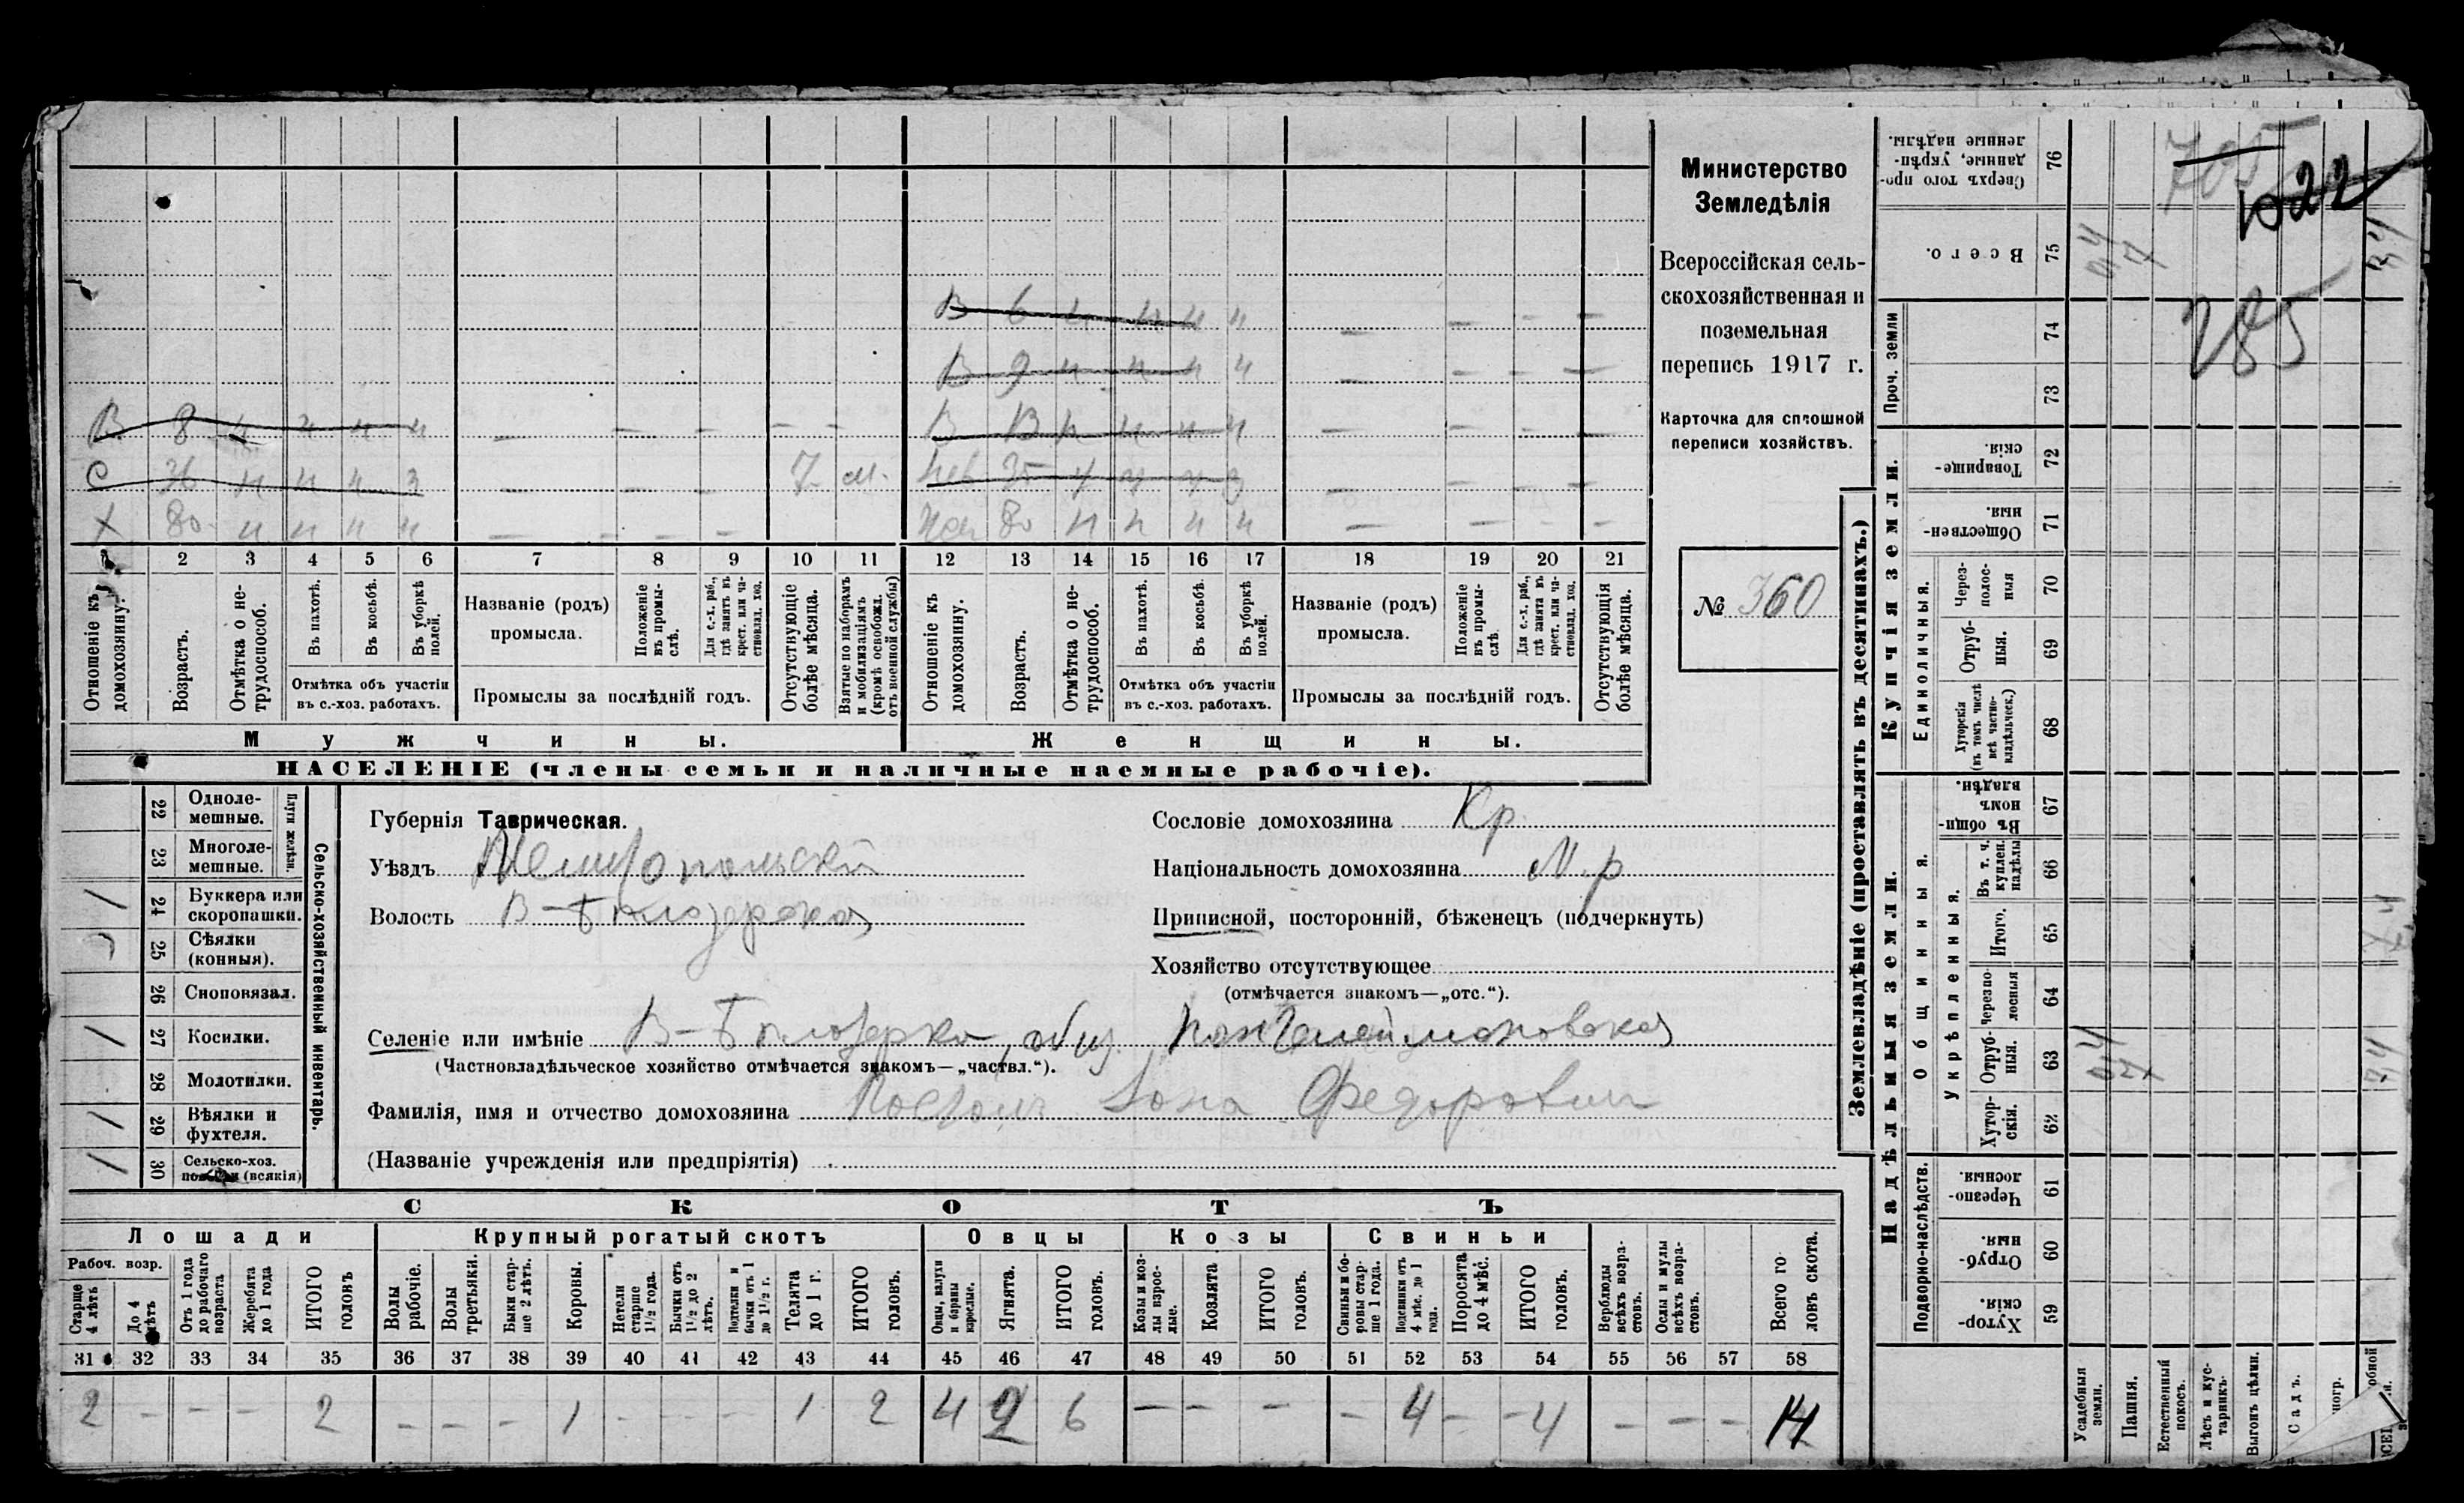 Министерство
Земледѣлія
Всероссійская сель-
скохозяйственная и
поземельная
перепись 1917 г.
Карточка для сплошной
переписи хозяйствъ.
№ 360
705
1522
285
В 6 н н н н — — - —
В 9 н н н н — — - —
В 8 н н н н — — — - -
В 13 н н н н — — - —
С 36 н н н з — — — 7 м.
35
Х 80 н н н н — - — -
Жен 80 н н н н — — - -
1 2 3 4 5 6 7 8 9 10 11 12 13 14 15 16 17 18 19 20 21
Отношеніе къ домохозяину.
Возрастъ.
Отмѣтка о не-трудоспособ.
Въ пахотѣ.
Въ косьбѣ.
Въ уборкѣ полей.
Отмѣтка объ участіи
въ с.-хоз. работахъ.
Названіе (родъ)
промысла.
Положеніе въ промы-слѣ.
Для с.-х. раб., гдѣ занятъ въ крест. или ча-стновлад. хоз.
Промыслы за послѣдній годъ.
Отсутствующіе болѣе мѣсяца.
Взятые по наборамъ и мобилизаціямъ (кромѣ освобожд. отъ военной службы)
Отношеніе къ домохозяину.
Возрастъ.
Отмѣтка о не-трудоспособ.
Въ пахотѣ.
Въ косьбѣ.
Въ уборкѣ полей.
Отмѣтка объ участіи
въ с.-хоз. работахъ.
Названіе (родъ)
промысла.
Положеніе въ промы-слѣ.
Для с.-х. раб., гдѣ занята въ крест. или ча-стновлад. хоз.
Промыслы за послѣдній годъ.
Отсутствующія болѣе мѣсяца.
Мужчины.
Женщины.
НАСЕЛЕНІЕ (члены семьи и наличные наемные рабочіе).
Сельско-хозяйственный инвентарь.
Плуги желѣзн.
22 Одноле-мешные.
23 Многоле-мешные.
/ 24 Буккера или скоропашки.
25 Сѣялки (конныя).
26 Сноповязал.
/ 27 Косилки.
28 Молотилки.
/ 29 Вѣялки и фухтеля.
/ 30 Сельско-хоз. (всякія)
Губернія Таврическая.
Уѣздъ Мелитопольскій
Волость В-Бѣлозерская
Сословіе домохозяина Кр.
Національность домохозяина М.р
Приписной, посторонній, бѣженецъ (подчеркнуть)
Хозяйство отсутствующее
(отмѣчается знакомъ—„отс.“).
Селеніе или имѣніе В-Бѣлозерка, общ. Пантелеймоновская
(Частновладѣльческое хозяйство отмѣчается знакомъ—„частвл.“).
Фамилія, имя и отчество домохозяина Іона Федоровичъ
(Названіе учрежденія или предпріятія)
СКОТЪ
Лошади
Крупный рогатый скотъ
Овцы
Козы
Свиньи
Рабоч. возр.
Старше 4 лѣтъ
До 4 лѣтъ
Отъ 1 года до рабочаго возраста
Жеребята до 1 года
ИТОГО головъ
Волы рабочіе.
Волы третьяки.
Быки стар-ше 2 лѣтъ.
Коровы.
Нетели старше 1½ года.
Бычки отъ 1½ до 2 лѣтъ.
Подтелки и бычки отъ 1 до 1½ г.
Телята до 1 г.
ИТОГО головъ.
Овцы, валухи и бараны взрослые.
Ягнята.
ИТОГО головъ.
Козы и коз-лы взрос-лые.
Козлята
ИТОГО головъ.
Свиньи и бо-ровы стар-ше 1 года.
Подсвинки отъ 4 мѣс. до 1 года.
Поросята до 4 мѣс.
ИТОГО головъ.
Верблюды всѣхъ возра-стовъ.
Ослы и мулы всѣхъ возра-стовъ.
Всего го-ловъ скота.
31 32 33 34 35 36 37 38 39 40 41 42 43 44 45 46 47 48 49 50 51 52 53 54 55 56 57 58
2 - - - 2 - - - 1 - - - 1 2 4 2 6 — - - - 4 - 4 - - - 14
Землевладѣніе (проставлять въ десятинахъ.)
Купчія земли.
Надѣльныя земли.
Сверхъ того про-данные, укрѣп-ленные надѣлы. 76
Всего. 75
Проч. земли 74
73
Товарище-скія 72
Обществен-ныя. 71
Единоличныя.
Через-полос-ныя 70
Отруб-ныя. 69
Хуторскія (въ томъ числѣ всѣ частно-владѣльческ.) 68
Общинныя.
Въ общин-номъ владѣн. 67
Укрѣпленныя.
Въ т. ч. куплен. надѣлы 66
Итого. 65
Черезпо-лосныя 64
Отруб-ныя. 63
Хутор-скія. 62
Подворно-наслѣдств.
Черезпо-лосныя 61
Отруб-ныя. 60
Хутор-скія 59
Усадебныя земли.
Пашня.
Естественный покосъ.
Лѣсъ и кус-тарникъ
Выгонъ цѣлин.
Садъ.